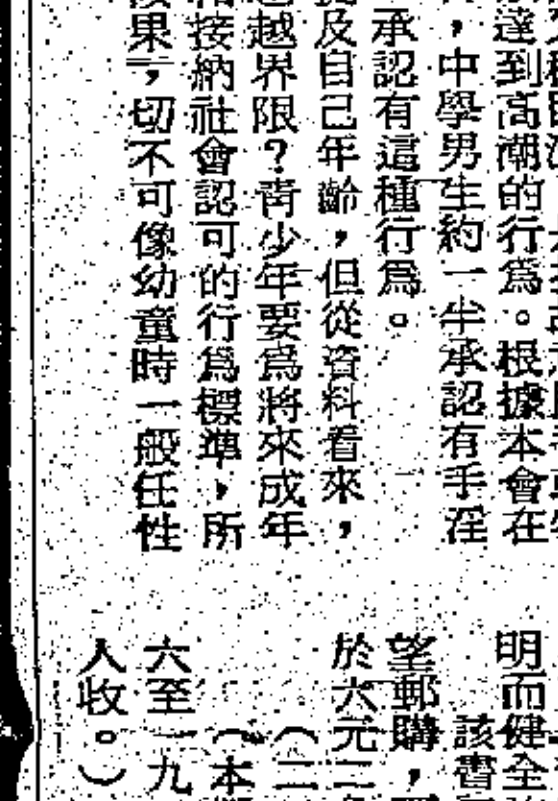 達到高潮的行爲。根據本會在
，中學男生約一半承認有手淫
承認有這種行爲。
及自己年齡，但從資料看來，
越界限？青少年要爲將來成年
接納社會認可的行爲標準，所
果，切不可像幼童時一般任性
明而健全
該書
望郵購，
於六元二
（二
（本
六至一九
人收。）